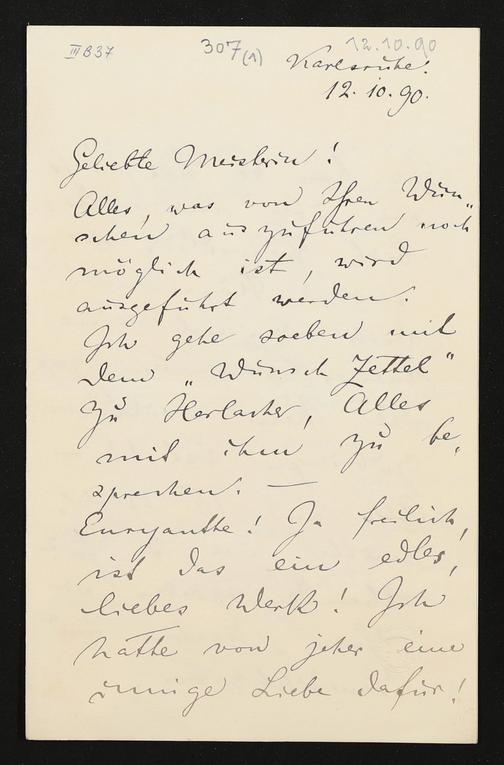 III B 37
307 (1)
12.10.90
Karlsruhe.
12. 10. 90.
Geliebte Meisterin!
Alles, was von Ihren Wün„
schen auszuführen noch
möglich ist, wird
ausgeführt werden.
Ich gehe soeben mit
dem „Wunsch Zettel"
zu Harlacher, Alles
mit ihm zu be„
sprechen. —
Euryanthe! Ja freilich,
ist das ein edles,
liebes Werk! Ich
hatte von jeher eine
innige Liebe dafür!